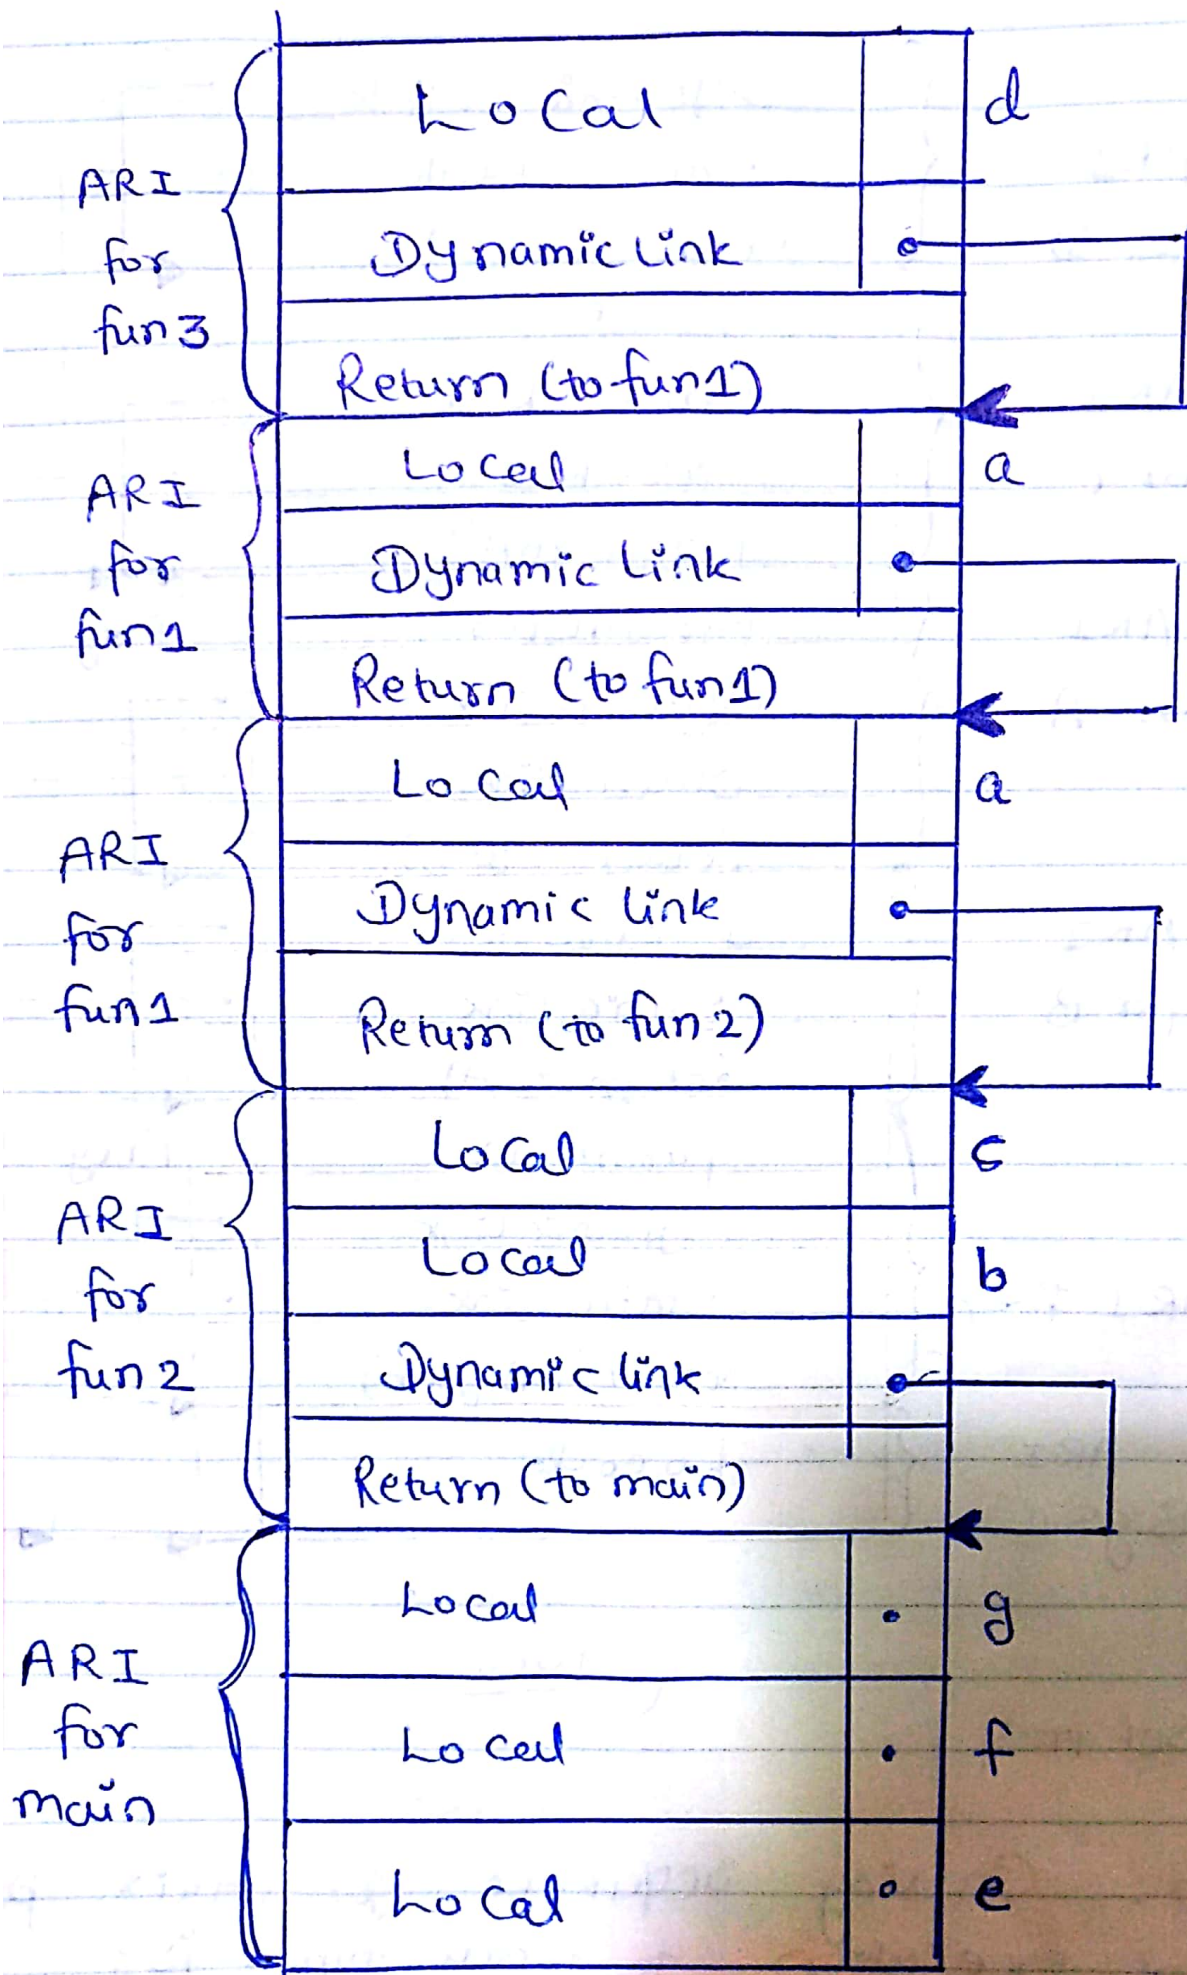 Local d
ARI
for
fun3
Dynamic link
Return (to fun1)
ARI
for
fun1
Local a
Dynamic link
Return (to fun1)
ARI
for
fun1
Local a
Dynamic link
Return (to fun2)
ARI
for
fun2
Local c
Local b
Dynamic link
Return (to main)
ARI
for
main
Local g
Local f
Local e